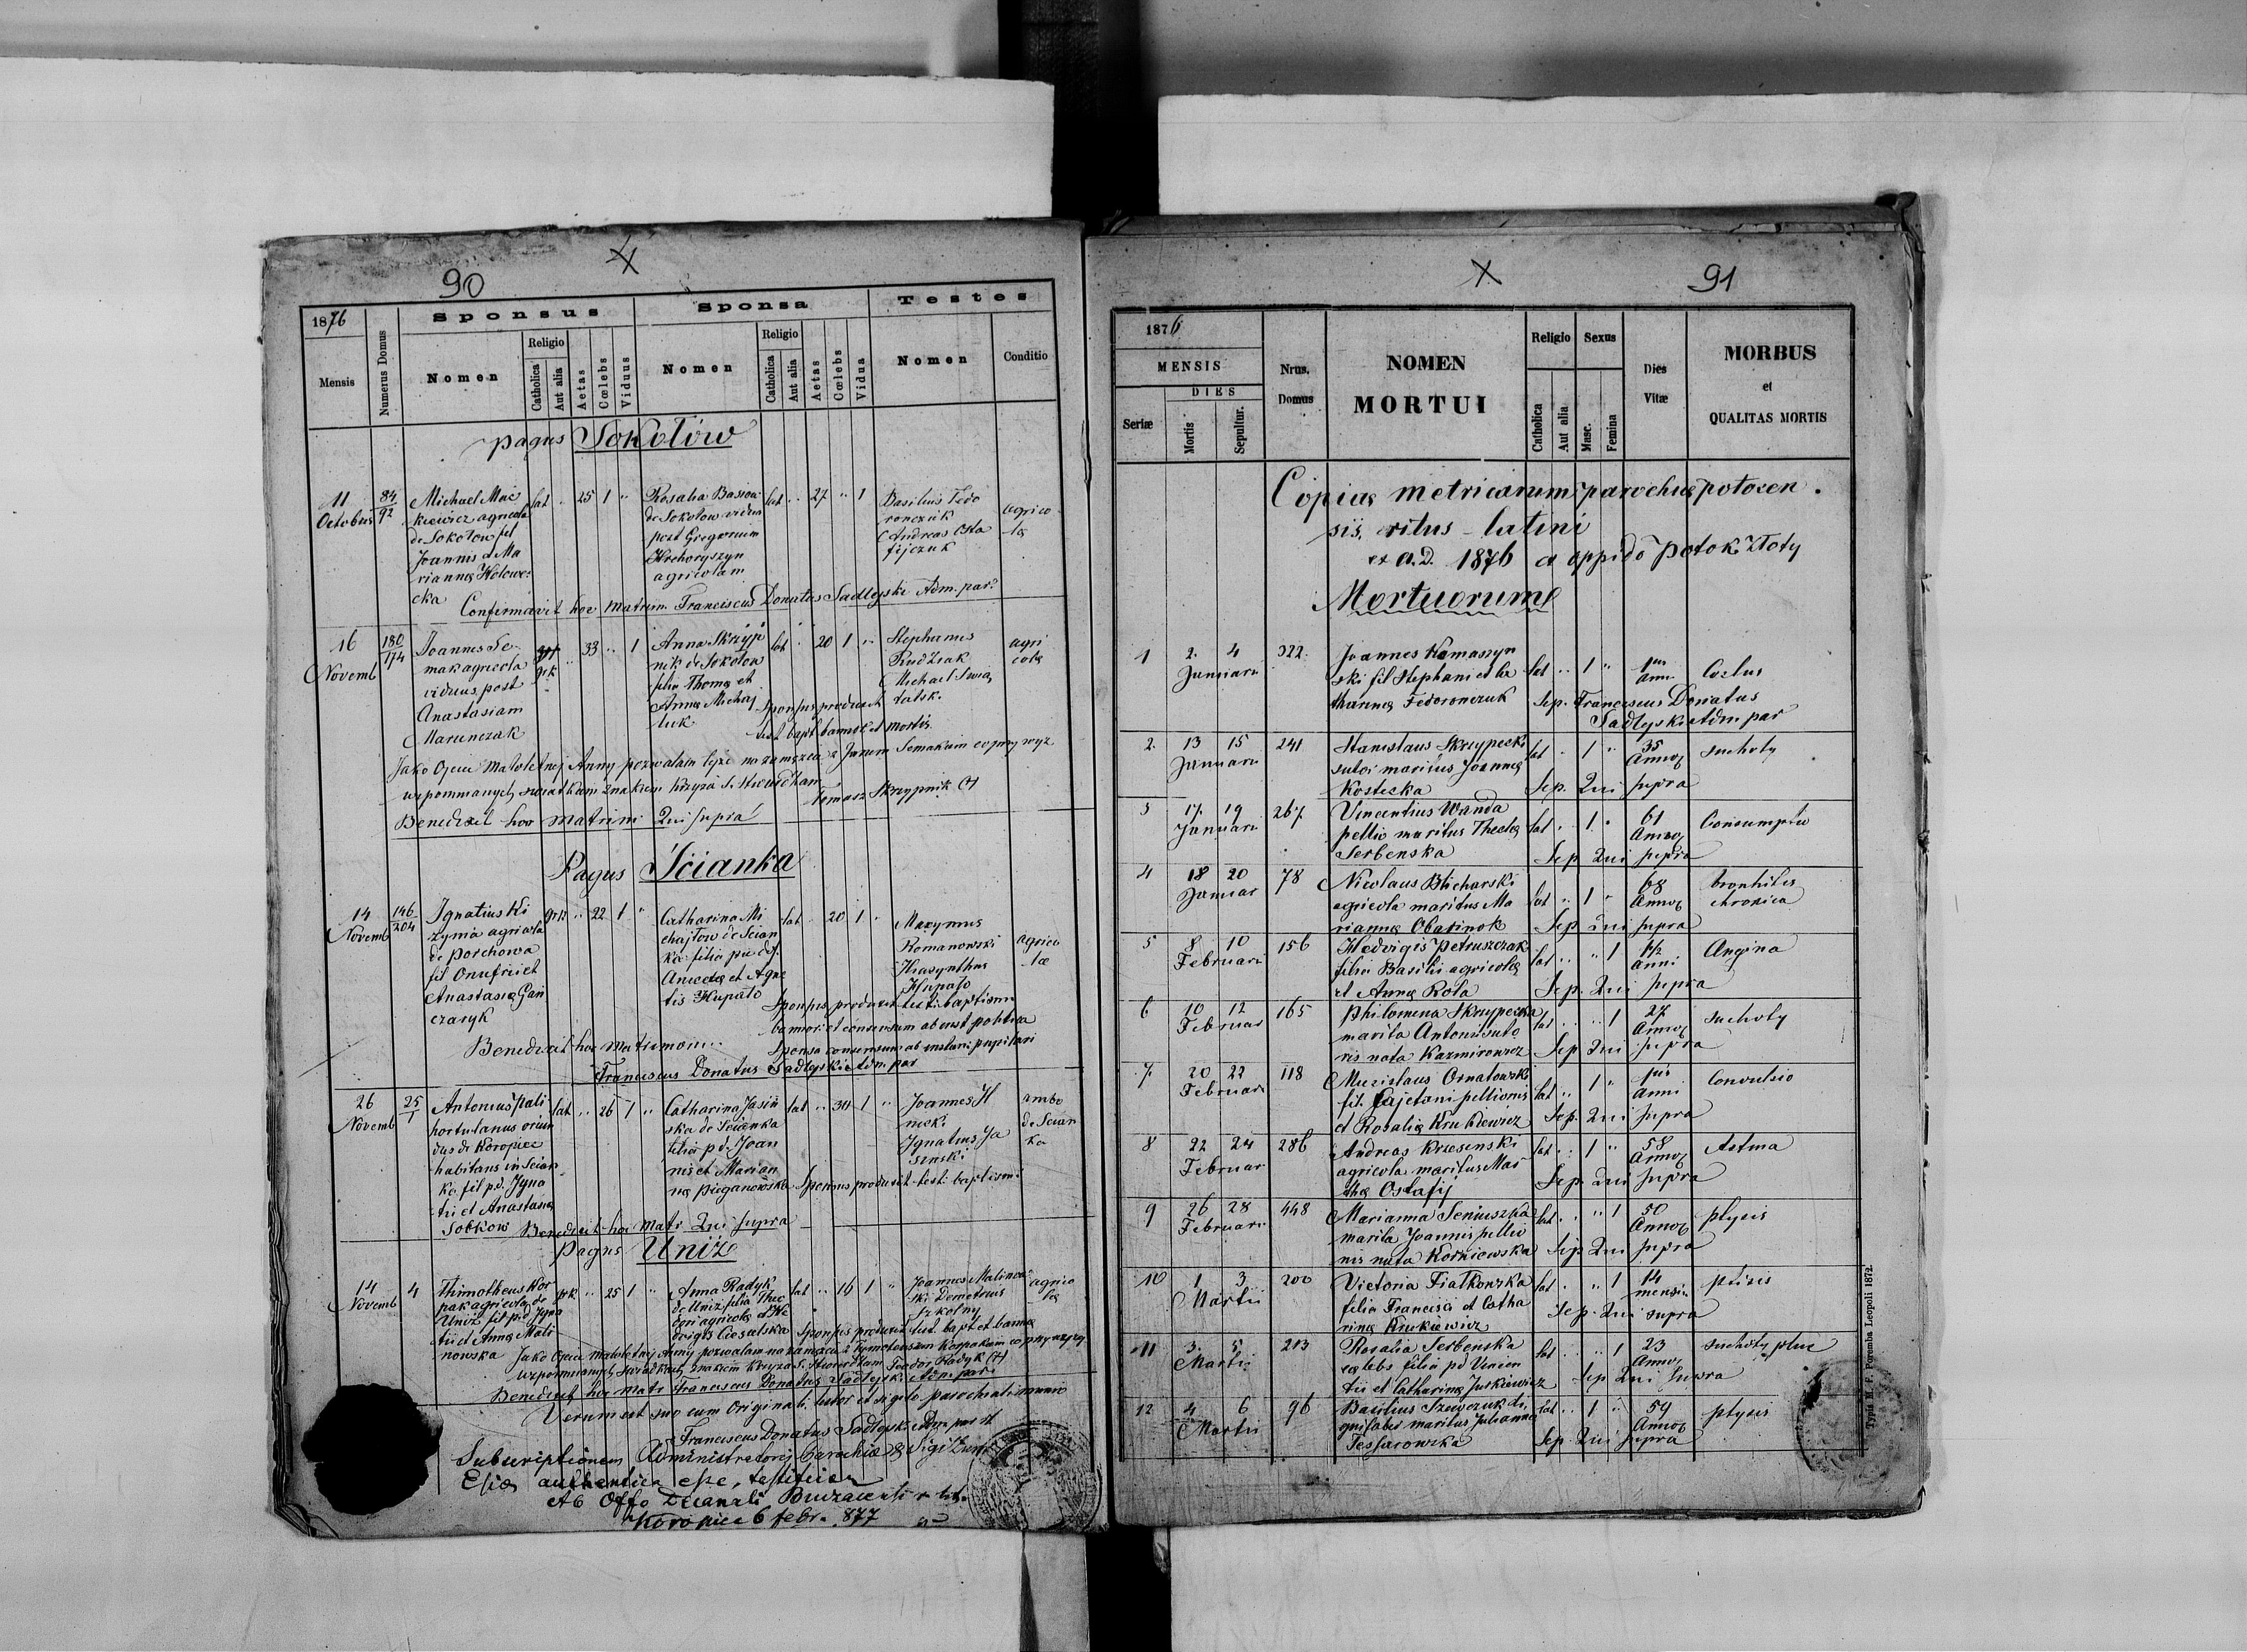 90
1876
Sponsus
Sponsa
Testes
Mensis
Numerus Domus
Nomen
Religio
Catholica
Aut alia
Aetas
Cœlebs
Viduus
Nomen
Religio
Catholica
Aut alia
Aetas
Cœlebs
Vidua
Nomen
Conditio
pagus Sokołów
11
Octobris
84
92
Michael Mac
kiewicz agricola
de Sokołow fil
Joannis et Ma
riannæ Holowe
cka
lat
25 1
Rosalia
de Sokołow vidua
post Gregorium
Hrehoryszyn
agricolam
lat
27 1
Basilius Fedo
ronczuk
Andreas Osta
fijczuk
agrico
læ
Confirmavit hoc matrim. Franciscus Donatus Sadłyski Adm. par.
16
Novemb
180
174
Joannes Se
mak agricola
viduus post
Anastasiam
Marunczak
grk
33 1
Anna Skrzyp
nik de Sokołow
filia Thomæ et
Annæ Michaj
luk
lat
20 1
Stephanus
Rudzak
Michael Swią
tatsk.
agri
colæ
Sponsus produxit
test bapt bannor et mortis
Jako Ojciec małoletniej Anny pozwalam tejże na zamęzcia z Janem Semakiem co przy wyż
wspomnianych swiadkam znakiem krzyża S. stwierdzam
Tomasz Skrzypnik (+)
Benedixit hoc matrim Qui supra
Pagus Ścianka
14
Novemb
146
204
Ignatius Ki
zynia agricola
de Porchowa
fil Onufrii et
Anastasiæ Gan
czaryk
grk
22 1
Catharina Mi
chajłow de Scian
ka filia
et Agne
tis Hupało
lat
20 1
Maxymus
Romanowski
Hiacynthus
Hupało
agrico
læ
Sponsus produxit test. baptism
bannor. et consensum ab inst politica
Sponsa consensum ab instan. pupilari
Benedixit hoc matrimon.
Franciscus Donatus Sadłyski Adm par
26
Novemb
25
1
Antonius Pali
hortulanus oriun
dus de Koropiec
habitans in Scian
ka fil p.d. Igna
tii et Anastasiæ
Sobkow
lat
26 1
Catharina Jasin
ska de Scianka
filia p d. Joan
nis et Marian
næ Pieganowska
lat
30 1
Joannes
Ignatius Ja
sinski
ambo
de Scian
ka
Sponsus produxit test. baptism.
Benedixit hoc matr Qui supra
Pagus Uniż
14
Novemb
4
Thimotheus Kor
pak agricola de
Uniż fil p.d Igna
tii et Annæ Mali
nowska
grk
25 1
Anna Radyk
de Uniż filia Theo
dori agricolæ et He
dvigis Ciesalska
lat
19 1
Joannes Malinow
ski Demetrius
Szkolny
agrico
læ
Sponsus produxit test. bapt et bannor
Jako Ojciec małoletniej Anny pozwalam na zamęzcie z Tymoteuszem Korpakiem co przy wyżej
wspomnianych swiadkach znakiem krzyża S. stwierdzam Teodor Radyk (+)
Benedixit hoc matr Franciscus Donatus Sadłyski Adm. par.
Verum est suo cum Originali testor et sigilo parochiali munio
Franciscus Donatus Sadłyski
Subscriptionem Administratoris Parochiæ & Sigillum
authentica esse, testificor
Ab Offo Decanali
Koropiec 6 febr. 877
91
1876
MENSIS
DIES
Seriæ
Mortis
Sepultur.
Nrus. Domus
NOMEN
MORTUI
Religio
Catholica
Aut alia
Sexus
Masc.
Femina
Dies
Vitæ
MORBUS
et
QUALITAS MORTIS
Copiæ metricarum parochiæ potocen.
sis, ritus latini
ex a.D. 1876 ex oppido Potok złoty
Mortuorum
1
2 4
Januarii
322
Joannes Komaszyn
ski fil Stephani et Ca
tharinæ Fedoronczuk
lat 1
1us
anni
Sep. Franciscus Donatus
Sadłyski Adm par
2.
13 15
Januarii
241
Stanislaus Skrzypecki
sutor maritus Joannæ
Kostecka
lat 1
35
Annor
suchoty
Sep. Qui supra
3
17 19
Januarii
267
Vincentius Wanda
pellio maritus Theclæ
Serbenska
lat 1
61
Annor
Consumptio
Sep Qui supra
4
18 20
Januar
78
Nicolaus Blicharski
agricola maritus Ma
riannæ Obarinok
lat 1
68
Annor
bronhitis
chronica
Sep Qui supra
5
8 10
Februarii
156
Hedvigis Petruszczak
filia Basilii agricolæ
et Annæ Rola
lat 1
1/2
anni
Angina
Sep. Qui supra
6
10 12
Februar
165
Philomena Skrzypecka
marita Antonii suto
ris nata Kazmirowicz
lat 1
27
Annor
suchoty
Sep Qui supra
7.
20 22
Februarii
118
Mieczislaus Ornatowski
fil. Cajetani pellionis
et Rosaliæ Krukiewicz
lat 1
1us
Anni
Convulsio
Sep. Qui supra
8
22 24
Februar
286
Andreas Krzesinski
agricola maritus Mar
thæ Ostafij
lat 1
58
Annor
Astma
Sep. Qui supra
9
26 28
Februarii
448
Marianna Seniuszka
marita Joannis pellio
nis nata Korniowska
lat 1
50
Annor
ptysis
Sep Qui supra
10
1 3
Martii
200
Victoria Fiałkowska
filia Francisci et Catha
rinæ Krukiewicz
lat 1
14
mensiu
ptisis
Sep. Qui supra
11
3. 5
Martii
213
Rosalia Serbenska
cælebs filia pd Vincen
tii et Catharinæ Jurkiewicz
lat 1
23
Annor
suchoty płuc
Sep Qui supra
12
4 6
Martii
96
Basilius Szewczuk di
maritus Juliannæ
Tessarowska
lat 1
59
Annor
ptysis
Sep. Qui supra
Typis M. F. Poremba Leopoli 1872.